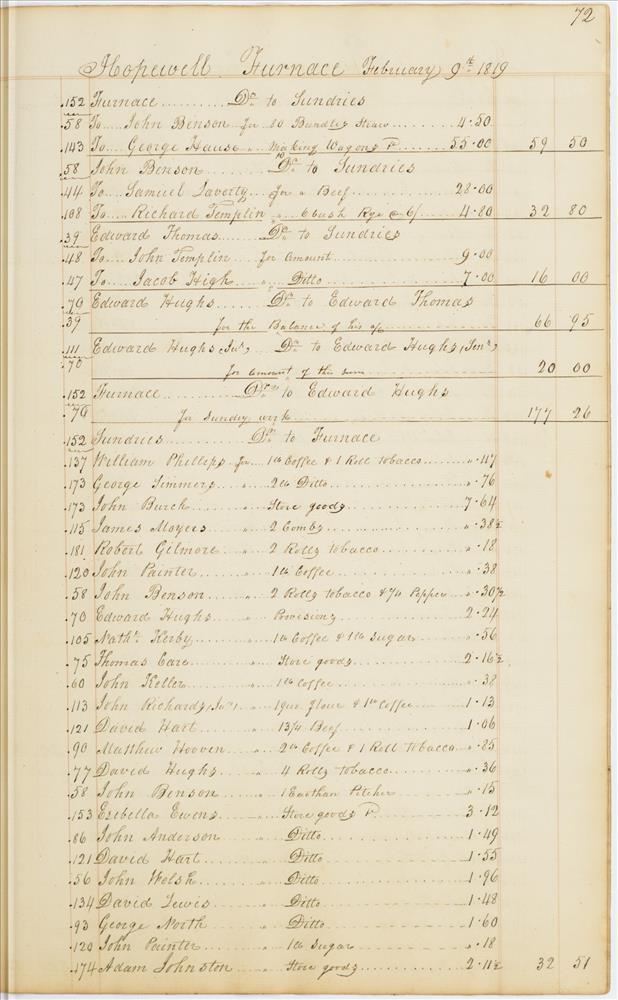 72
Hopewell Furnace February 9th 1819
152 Furnace Dr to Sundries
58 To John Benson for 80 Bundles Straw 4.50
143 To George Hause " Making Wagons P. 55.00 59 50
58 John Benson Dr to Sundries
44 To Samuel Laverty for " Beef 28.00
108 To Richard Templin " 6 bush Rye @ 6/ 4.80 32 80
39 Edward Thomas Dr to Sundries
48 To John Templin for amount 9.00
47 To Jacob High " Ditto 7.00 16 00
70 Edward Hughs Dr to Edward Thomas
39 for the Balance of his a/c 66 95
111 Edward Hughs, Junr, Dr to Edward Hughs, Senr,
70 for amount of this sum 20 00
152 Furnace Dr to Edward Hughs
70 for Sundry work 177 26
152 Sundries Dr to Furnace
137 William Phillips for 1 lb Coffee & 1 Roll tobacco " .47
173 George Simmers " 2 lb Ditto " .76
173 John Burch " Store goods 7.64
115 James Moyers " 2 Combs " .38½
181 Robert Gilmore " 2 Rolls tobacco " .18
120 John Painter " 1 lb Coffee " .38
58 John Benson " 2 Rolls tobacco & ¼ Pepper " .30½
70 Edward Hughs " Provisions 2.24
105 Nathl. Kerby " 1 lb Coffee & 1 lb Sugar " .56
75 Thomas Care " Store goods 2.16½
60 John Keller " 1 lb Coffee " .38
113 John Richards, Junr, " 1 qur flour & 1 lb Coffee 1.13
121 David Hart " 13¼ Beef 1.06
90 Matthew Hooven " 2 lb Coffee & 1 Roll tobacco " .85
77 David Hughs " 4 Rolls tobacco " .36
58 John Benson " 1 Earthan Pitcher " .15
153 Esebella Ewens " Store goods P. 3.12
86 John Anderson " Ditto 1.49
121 David Hart " Ditto 1.55
56 John Welsh " Ditto 1.96
134 David Lewis " Ditto 1.48
93 George North " Ditto 1.60
120 John Painter " 1 lb Sugar " .18
174 Adam Johnston " Store goods 2.11½ 32 51